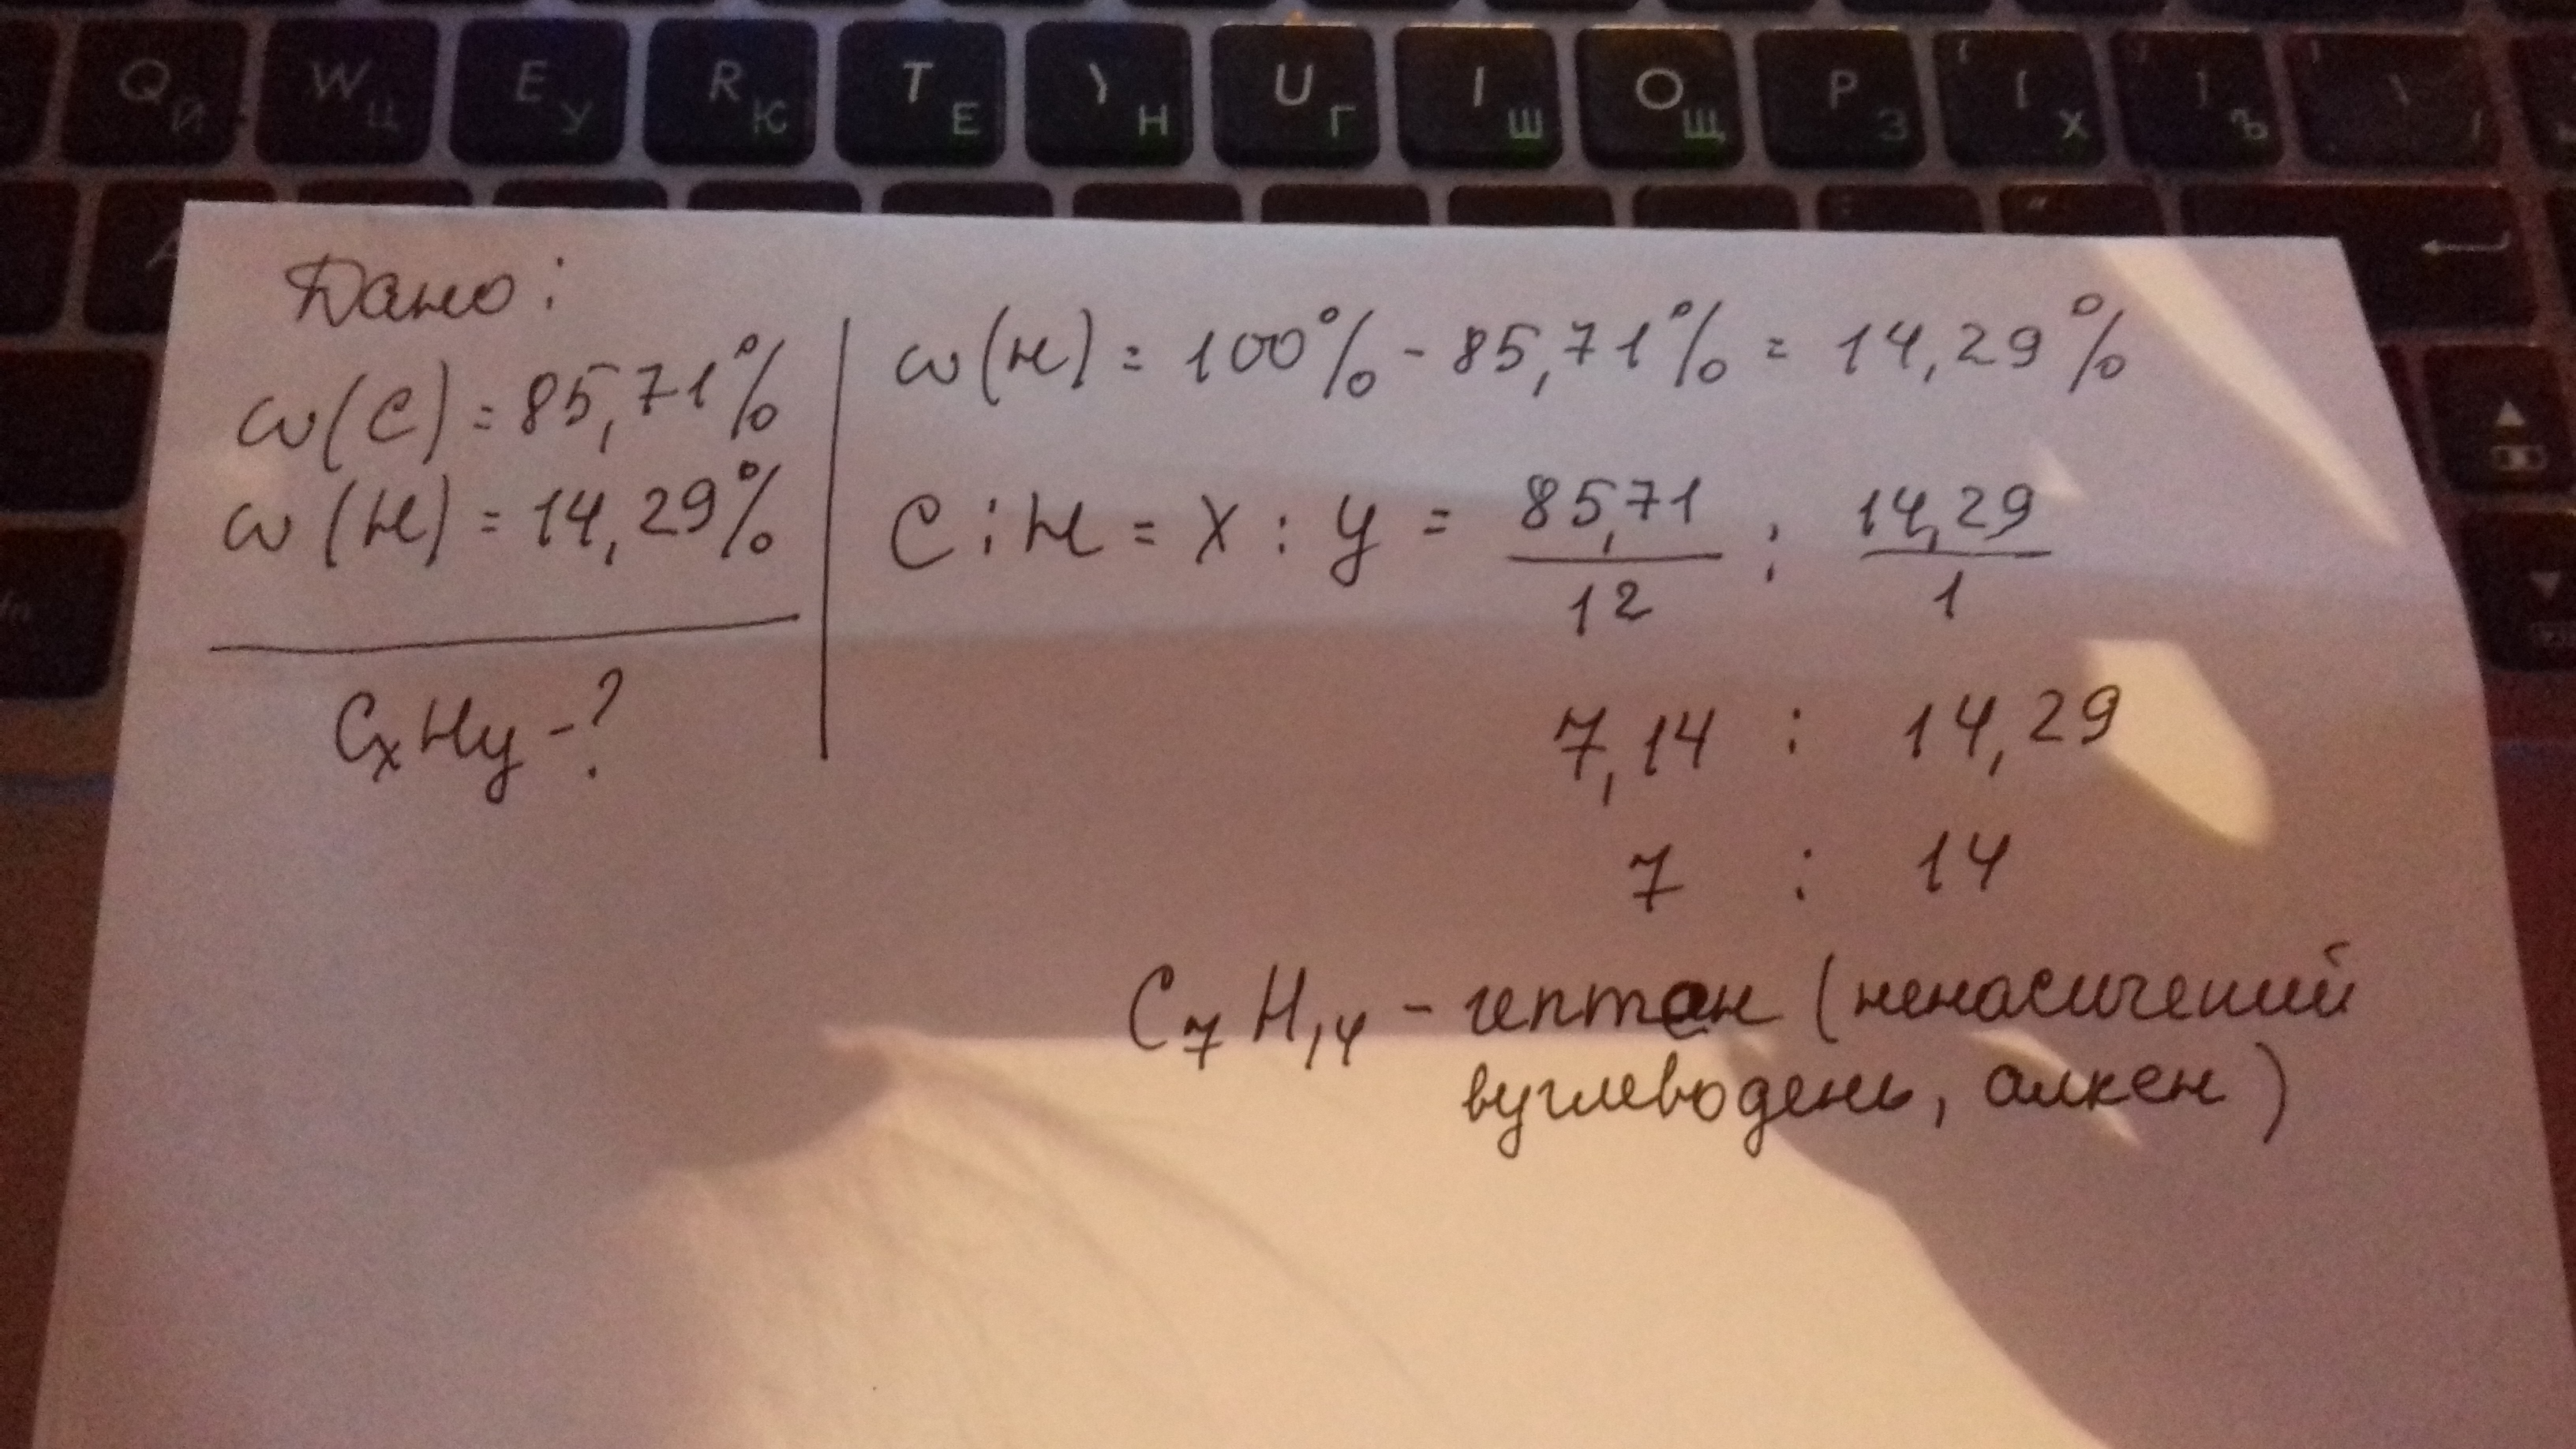 Q Й W Ц E У R К T Е Y Н U Г I Ш O Щ P З [ Х ] Ъ \
Дано:
ω(C) = 85,71%
ω(H) = 14,29%
CxHy - ?
ω(H) = 100% - 85,71% = 14,29%
C : H = X : Y = 85,71/12 : 14,29/1
7,14 : 14,29
7 : 14
C₇H₁₄ - гептен (ненасичений
вуглеводень, алкен)